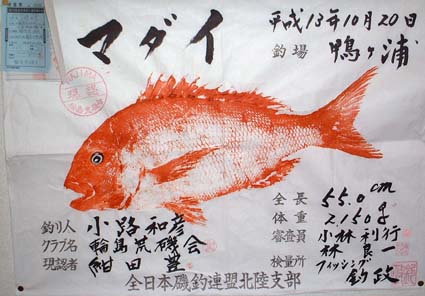 マダイ
平成13年10月20日
釣場 鴨ヶ浦
全長 55.0cm
体重 2,150g
審査員 小林利行
林良一
検量所 フィッシング釣政
釣り人 小路和彦
クラブ名 輪島荒磯会
現認者 紺田豊
全日本磯釣連盟北陸支部